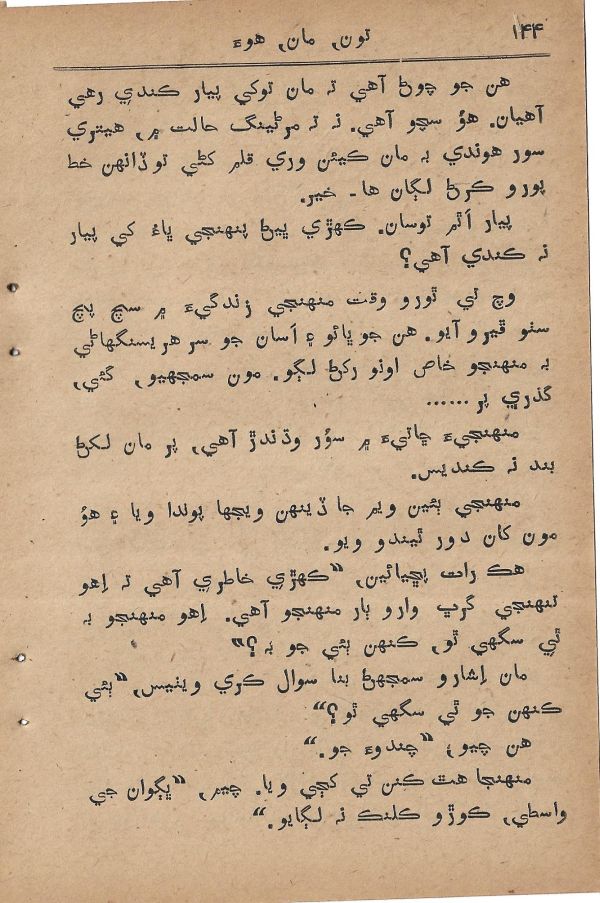 ۱۴۴
تون, مان, هوءَ
هن جو چوڻ آهي تہ مان توکي پيار ڪندي رهي
آهيان. هوُ سچو آهي. نہ تہ مرڻينگ حالت ۾, هيتري
سور هوندي بہ مان ڪيئن وري قلم کڻي توڏانهن خط
پورو ڪرڻ لڳان ها۔ خير.
پيار اَٿم توسان. ڪهڙي ڀيڻ پنهنجي ڀاءُ کي پيار
نہ ڪندي آهي؟
وچ تي ٿورو وقت منهنجي زندگيءَ ۾ سچ پچ
سٺو ڦيرو آيو. هن جو ڀائو ۽ اَسان جو سر هريسنگهاڻي
بہ منهنجو خاص اونو رکڻ لڳو. مون سمجهيو, گئي,
گذري پر ......
منهنجيءَ ڇاتيءَ ۾ سوُر وڌندڙ آهي, پر مان لکڻ
بند نہ ڪنديس.
منهنجي ٻئين ويم جا ڏينهن ويجها پوندا ويا ۽ هوُ
مون کان دور ٿيندو ويو.
هڪ رات پڇيائين, “ڪهڙي خاطري آهي تہ اِهو
تنهنجي گرڀ وارو ٻار منهنجو آهي. اِهو منهنجو بہ
ٿي سگهي ٿو, ڪنهن ٻئي جو بہ؟”
مان اِشارو سمجهڻ بنا سوال ڪري ويٺيس, “ٻئي
ڪنهن جو ٿي سگهي ٿو؟”
هن چيو؛ “چندوءَ جو.”
منهنجا هٿ ڪنن تي کڄي ويا. چيم, “ڀڳوان جي
واسطي, ڪوڙو ڪلنڪ نہ لڳايو.”